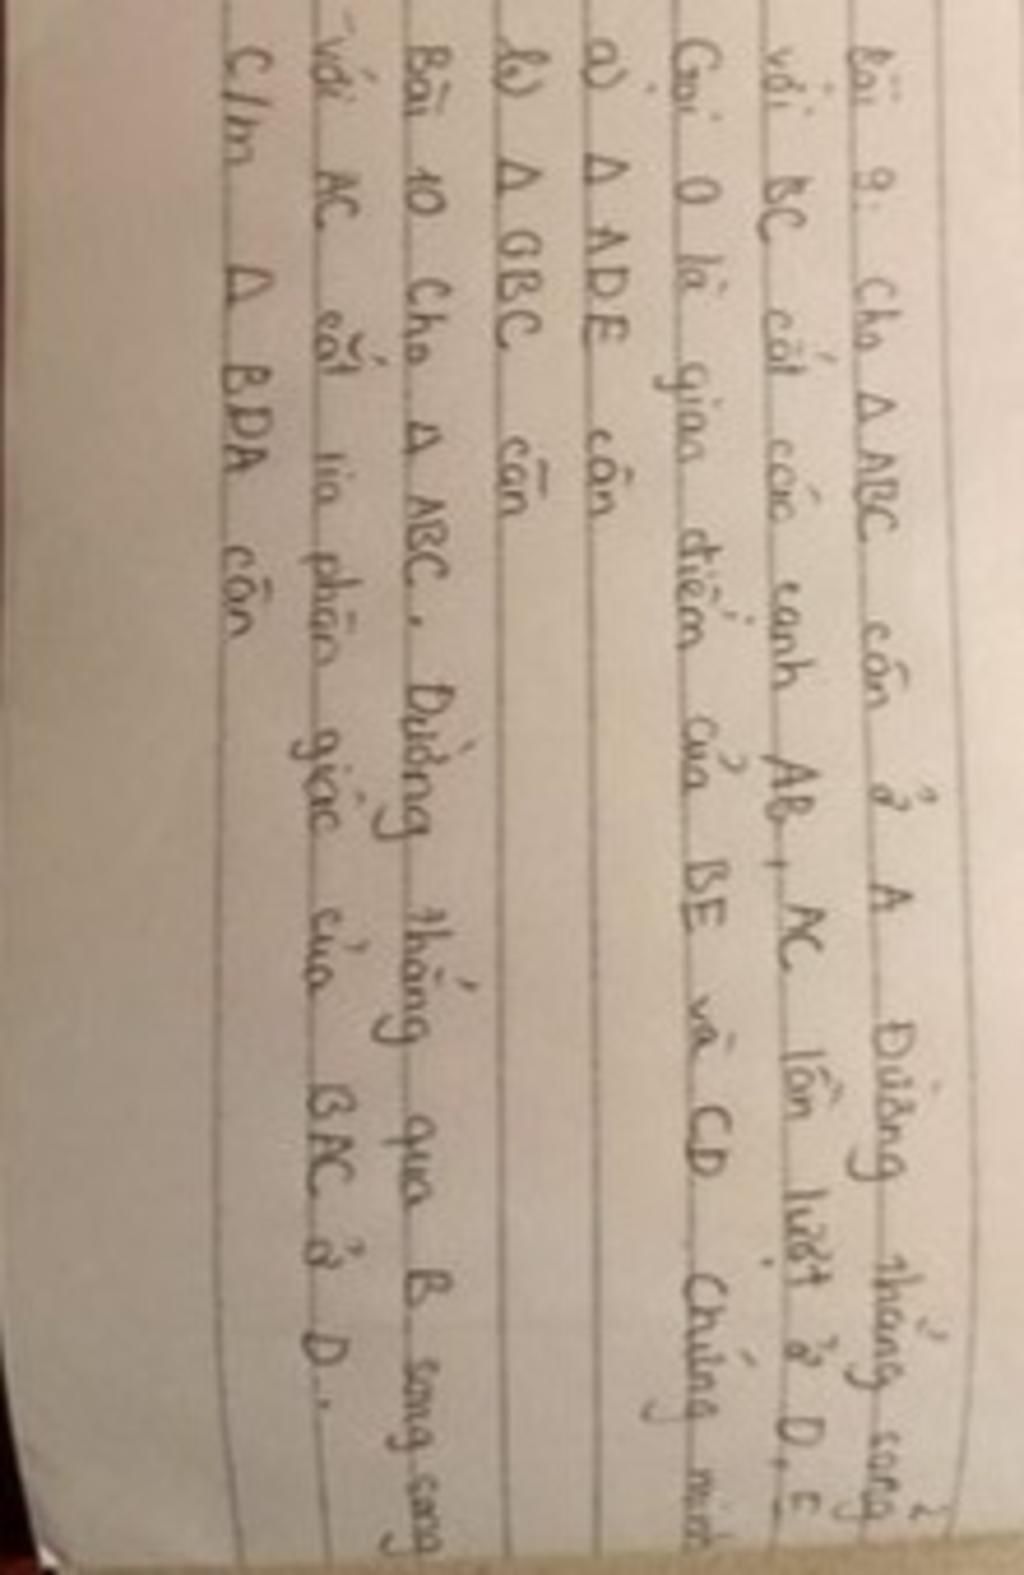 Bài 9. Cho Δ ABC cân ở A Đường thẳng song
với BC cắt các cạnh AB, AC lần lượt ở D, E
Gọi O là giao điểm của BE và CD Chứng minh
a) Δ ADE cân
b) Δ OBC cân
Bài 10 Cho Δ ABC. Đường thẳng qua B song song
với AC cắt tia phân giác của BAC ở D.
C/m Δ BDA cân